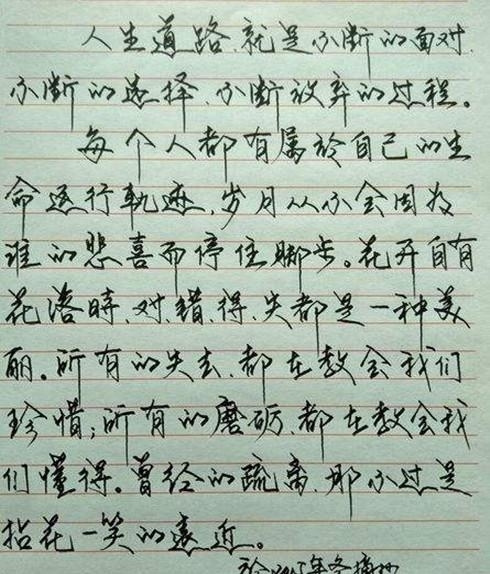 人生道路、就是不断的面对、
不断的选择、不断放弃的过程。
每个人都有属於自己的生
命运行軌迹，岁月从不会因为
谁的悲喜而停住脚步。花开自有
花落時，对、错、得、失都是一种美
丽。所有的失去、都在教会我们
珍惜；所有的磨砺、都在教会我
们懂得。曾经的疏离、那不过是
拈花一笑的远近。
冬摘抄